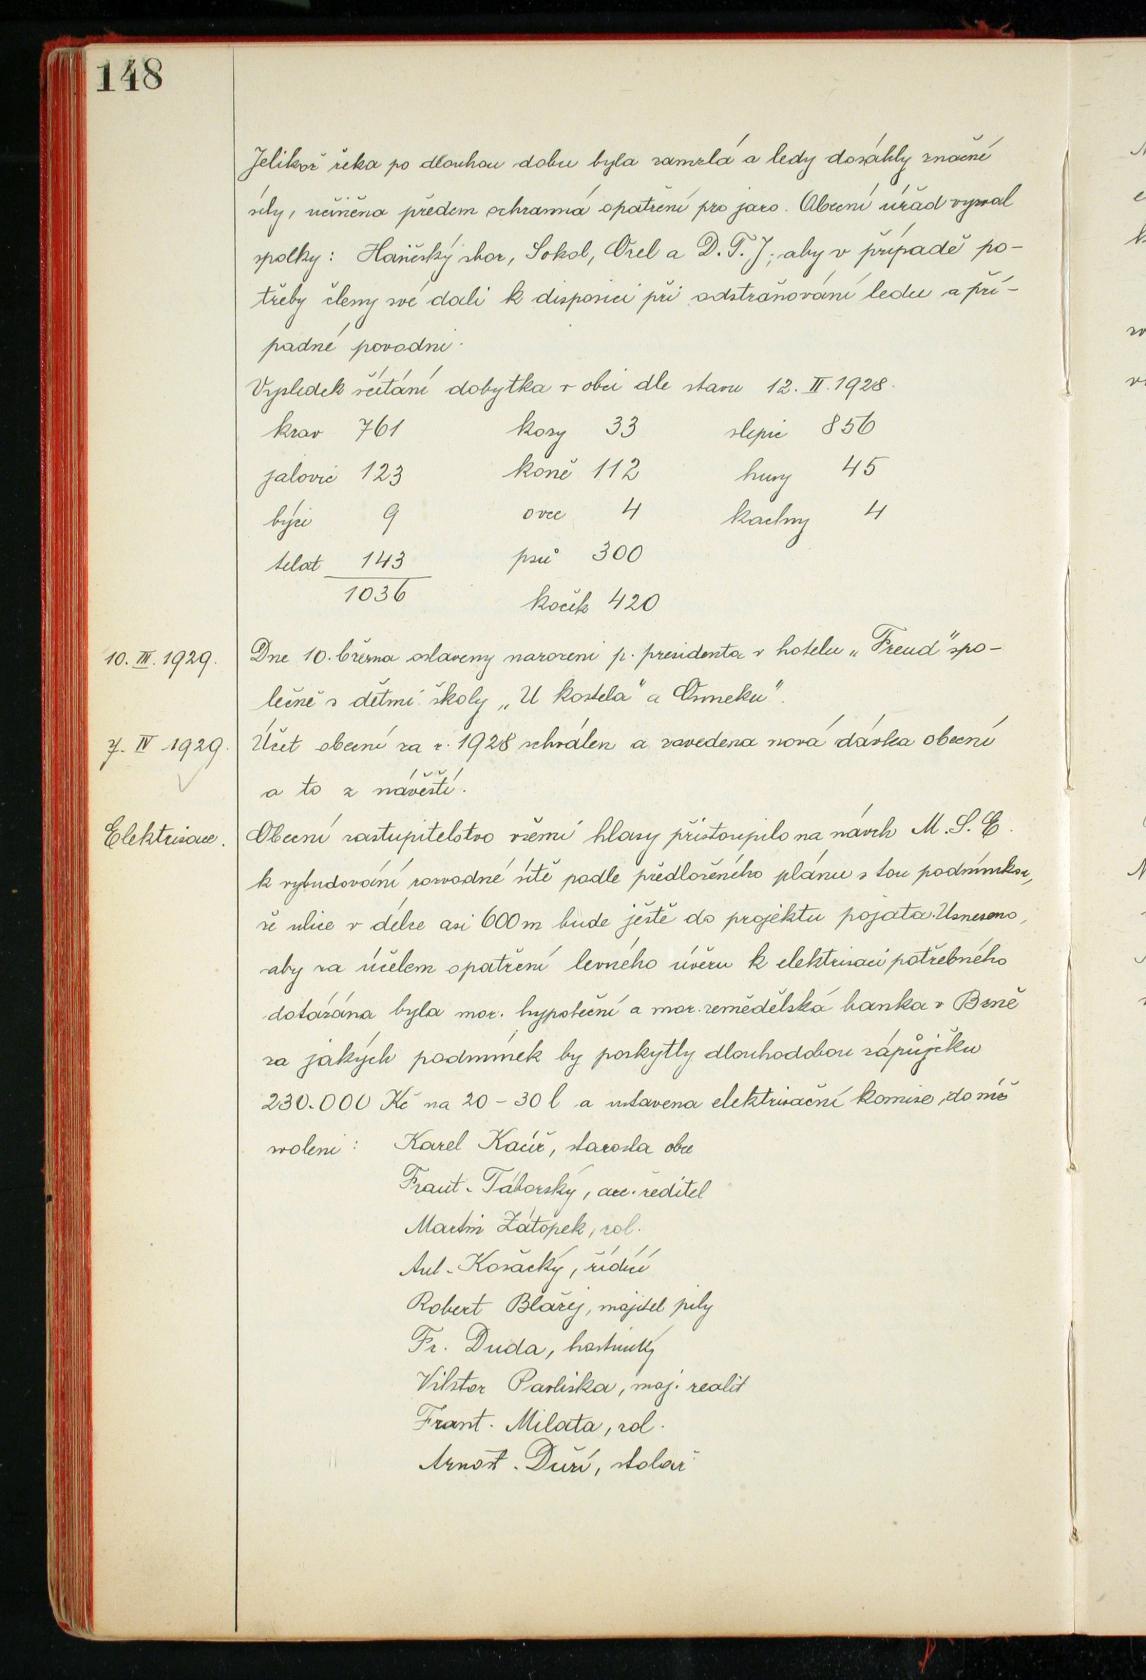 148
Jelikož řeka po dlouhou dobu byla zamrzlá a ledy dosáhly značné
síly, učiněna předem ochranná opatření pro jaro. Obecní úřad vyzval
spolky: Hasičský sbor, Sokol, Orel a D.T.J; aby v případě po-
třeby členy své dali k disposici při odstraňování ledu a pří-
padné povodni.
Výsledek sčítání dobytka v obci dle stavu 12. II. 1928.
krav 761 kozy 33 slepic 856
jalovic 123 koně 112 husy 45
býci 9 ovce 4 kachny 4
telat 143 psů 300
1036 koček 420
10. III. 1929. Dne 10. března oslaveny narozeni p. presidenta v hotelu „Freud" spo-
lečně s dětmi školy „U kostela" a Osmeku".
7. IV 1929. Účet obecní za r. 1928 schválen a zavedena nová dávka obecní
a to z návěští.
Elektrisace. Obecní zastupitelstvo všemi hlasy přistoupilo na návrh M.S.E.
k vybudování rozvodné sítě podle předloženého plánu s tou podmínkou,
že ulice v délce asi 600 m bude ještě do projektu pojata. Usneseno,
aby za účelem opatření levného úvěru k elektrisaci potřebného
dotázána byla mor. hypoteční a mor. zemědělská banka v Brně
za jakých podmínek by poskytly dlouhodobou zápůjčku
230.000 Kč na 20 – 30 l a ustavena elektrisační komise, do níž
zvoleni: Karel Kacíř, starosta obce
Frant. Táborský, ředitel
Martin Zátopek, rol.
Ant. Kosačký, řídící
Robert Blažej, majitel pily
Fr. Duda, hostinský
Viktor Pavliska, maj. realit
Frant. Milata, rol.
Arnošt. Duží, stolař